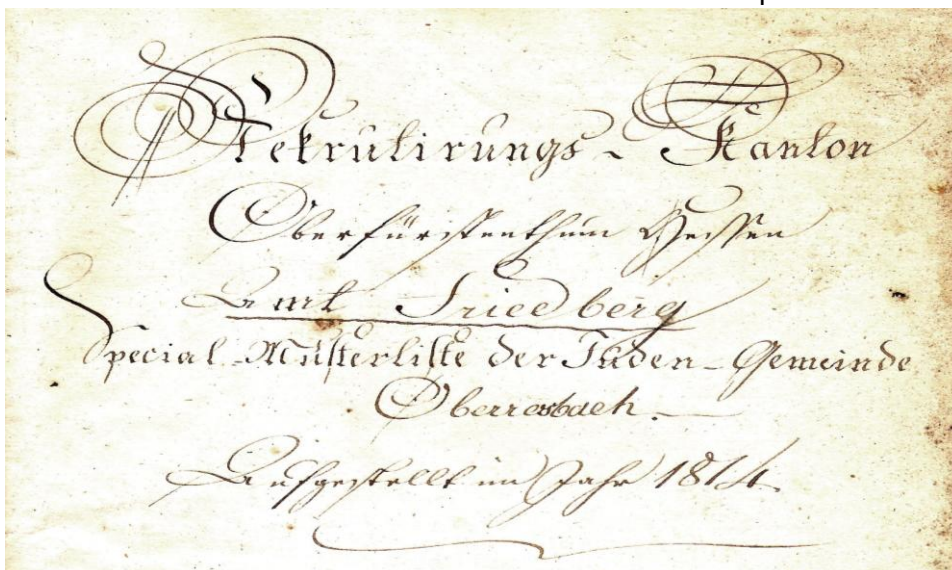 Rekrutirungs - Kanton
Oberfürstenthum Hessen
Amt Friedberg
Special-Musterliste der Juden-Gemeinde
Oberrosbach.
Aufgestellt im Jahr 1814.